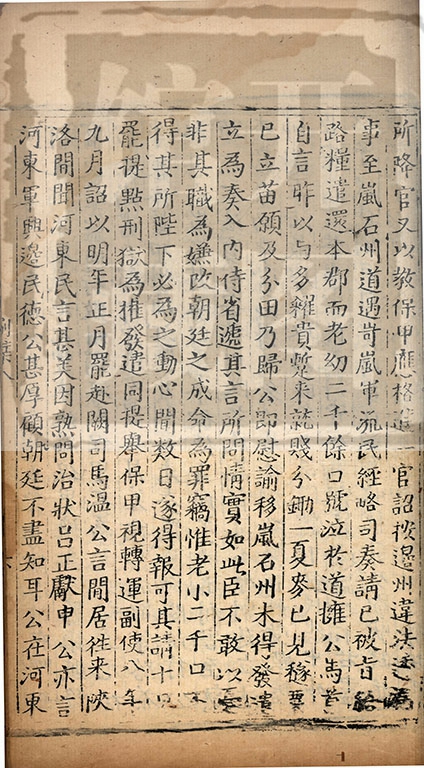 所略官又以教保甲應格進一官詔按邊州違法
事至嵐石州道遇岢嵐軍流民經略司奏請已被旨給
路糧遣還本郡而老幼二千餘口號泣於道擁公馬首
自言昨以与多糴貴蹔來就賤分鋤一夏麥已見稼粟
已立苗願及分田乃歸公即慰諭移嵐石州未得發遣
立為奏入內侍省遞其言所問情實如此臣不敢以
非其職為嫌改朝廷之成命為罪竊惟老小二千口
得其所陛下必為之動心閒數日遂得報可其請十
罷提點刑獄為權發遣同提舉保甲視轉運副使八年
九月詔以明年正月罷赴闕司馬溫公言閒居往來陝
洛間聞河東民言其美因熟問治狀呂正獻申公亦言
河東軍興邊民德公甚厚顧朝廷不盡知耳公在河東